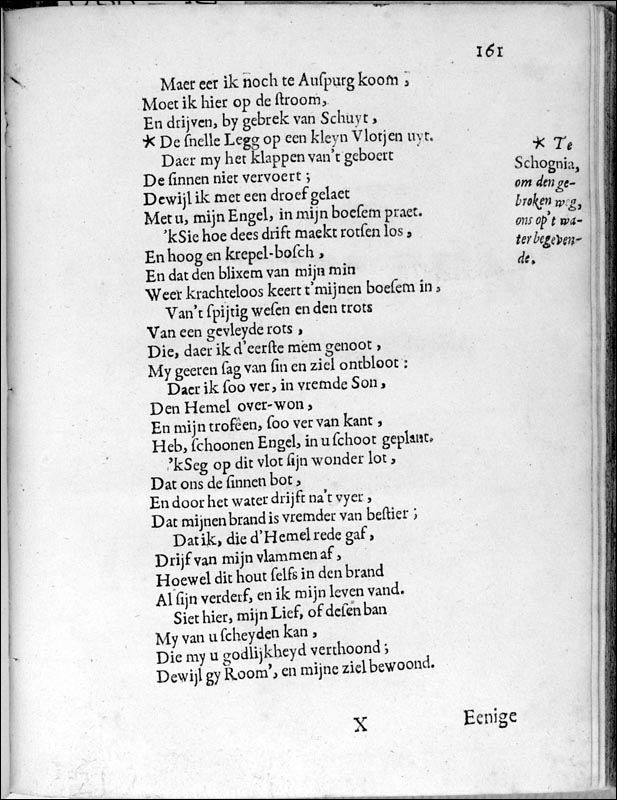 161
Maer eer ik noch te Auſpurg koom ,
Moet ik hier op de ſtroom,
En drijven, by gebrek van Schuyt ,
* De ſnelle Legg op een kleyn Vlotjen uyt.
Daer my het klappen van't geboert
De ſinnen niet vervoert ;
Dewijl ik met een droef gelaet
Met u, mijn Engel, in mijn boeſem praet.
'kSie hoe dees drift maekt rotſen los ,
En hoog en krepel-boſch ,
En dat den blixem van mijn min
Weer krachteloos keert t'mijnen boeſem in ,
Van't ſpijtig weſen en den trots
Van een gevleyde rots ,
Die, daer ik d'eerſte mem genoot ,
My geeren ſag van ſin en ziel ontbloot :
Daer ik ſoo ver, in vremde Son ,
Den Hemel over-won ,
En mijn troféen, ſoo ver van kant ,
Heb, ſchoonen Engel, in u ſchoot geplant.
'kSeg op dit vlot ſijn wonder lot ,
Dat ons de ſinnen bot ,
En door het water drijft na't vyer ,
Dat mijnen brand is vremder van beſtier ;
Dat ik, die d'Hemel rede gaf ,
Drijf van mijn vlammen af ,
Hoewel dit hout ſelfs in den brand
Al ſijn verderf, en ik mijn leven vand.
Siet hier, mijn Lief, of deſen ban
My van u ſcheyden kan ,
Die my u godlijkheyd verthoond ;
Dewijl gy Room', en mijne ziel bewoond.
* Te
Schognia,
om den ge-
broken weg,
ons op't wa-
ter begeven-
de.
X
Eenige